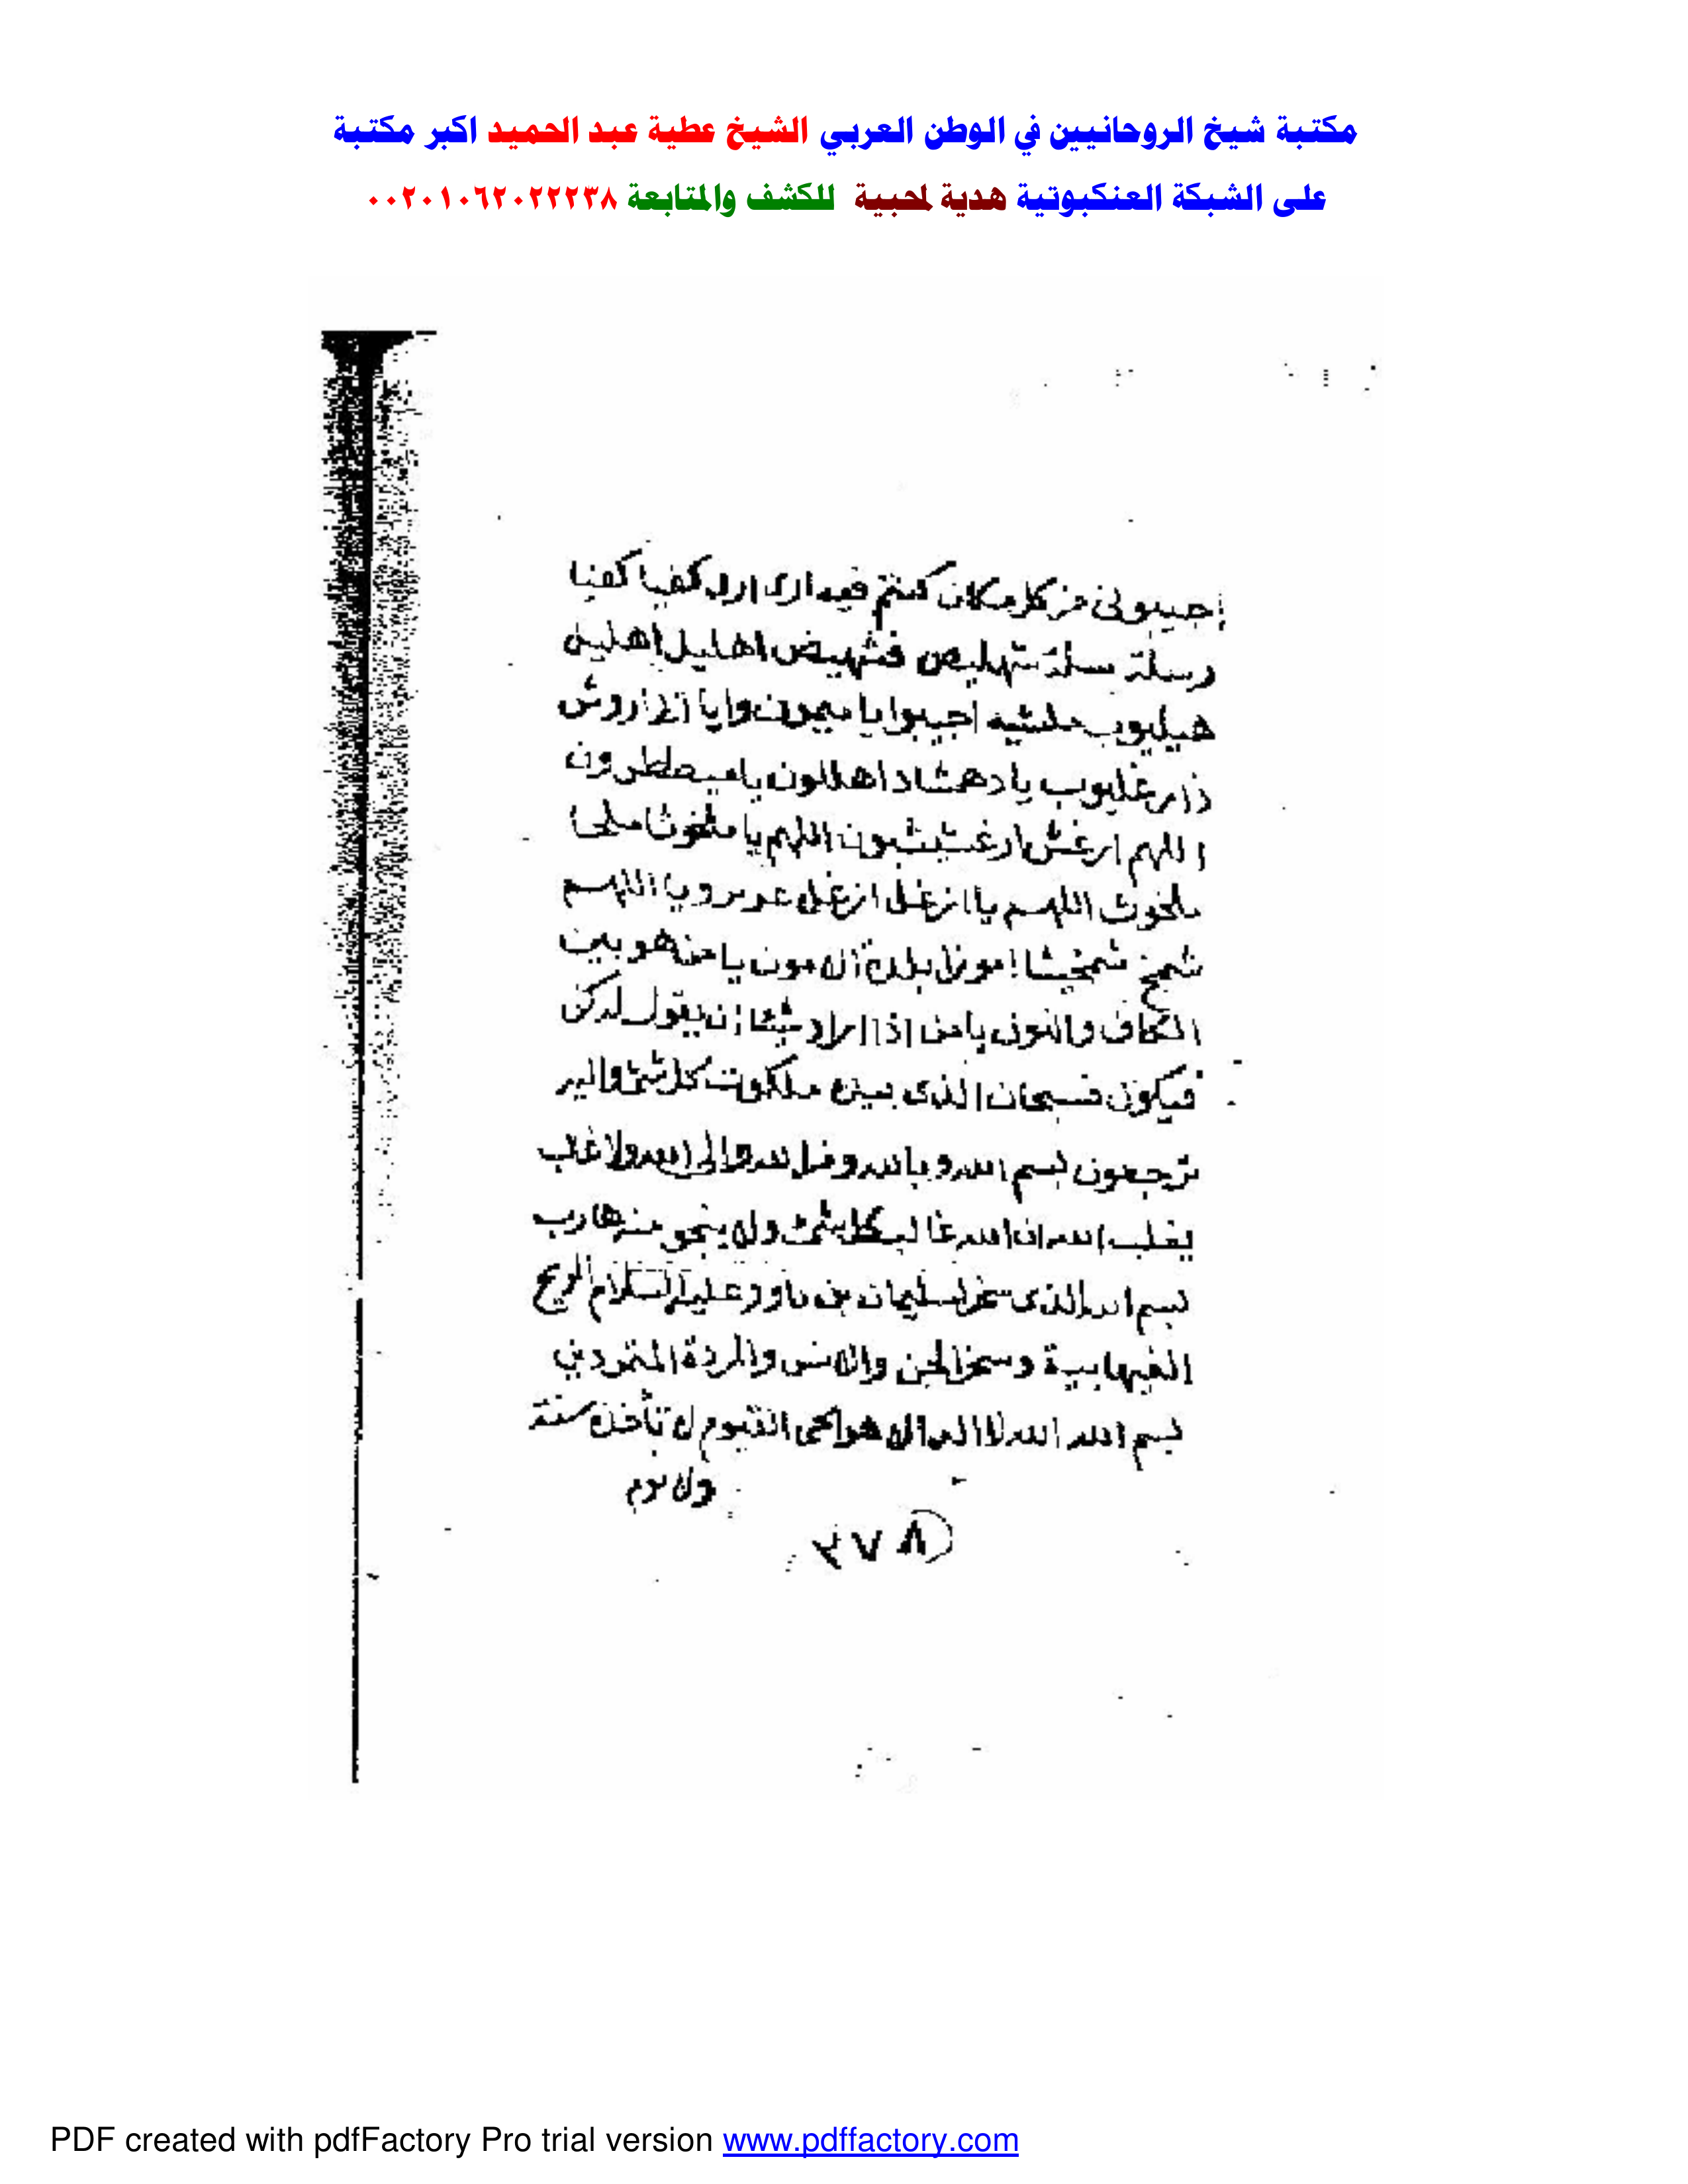 مكتبة شيخ الروحانيين في الوطن العربي الشيخ عطية عبد الحميد اكبر مكتبة
على الشبكة العنكبوتية هدية لمحبية للكشف والمتابعة ٠٠٢٠١٠٦٢٠٢٢٢٣٨
إجيبونى من كل مكان كنتم فيه كفيا كفيا
اهليل
هيليوب اجيبوا يا ميمون وايا
يا دهشاد اهللون يا ميططرون
اللهم ارغش ارغشيشون اللهم يا
ملخوث اللهم يا ازغل ازغل اللهم
شمخ شمخيثا يا من هو بين
الكاف والنون يا من إذا اراد شيئا ان يقول له كن
فيكون فسبحان الذى بيده ملكوت كل شئ واليه
ترجعون بسم الله وبالله ومن الله والى الله ولا غالب
يغلب الله ان الله غالب كل شئ ولا ينجو منه هارب
بسم الله الذى سخر لسليمان بن داود عليه السلام الريح
وسخر الجن والانس والمردة المتمردين
بسم الله الله لا اله الا هو الحى القيوم لا تأخذه سنة
ولا نوم
٣٧٨
PDF created with pdfFactory Pro trial version www.pdffactory.com